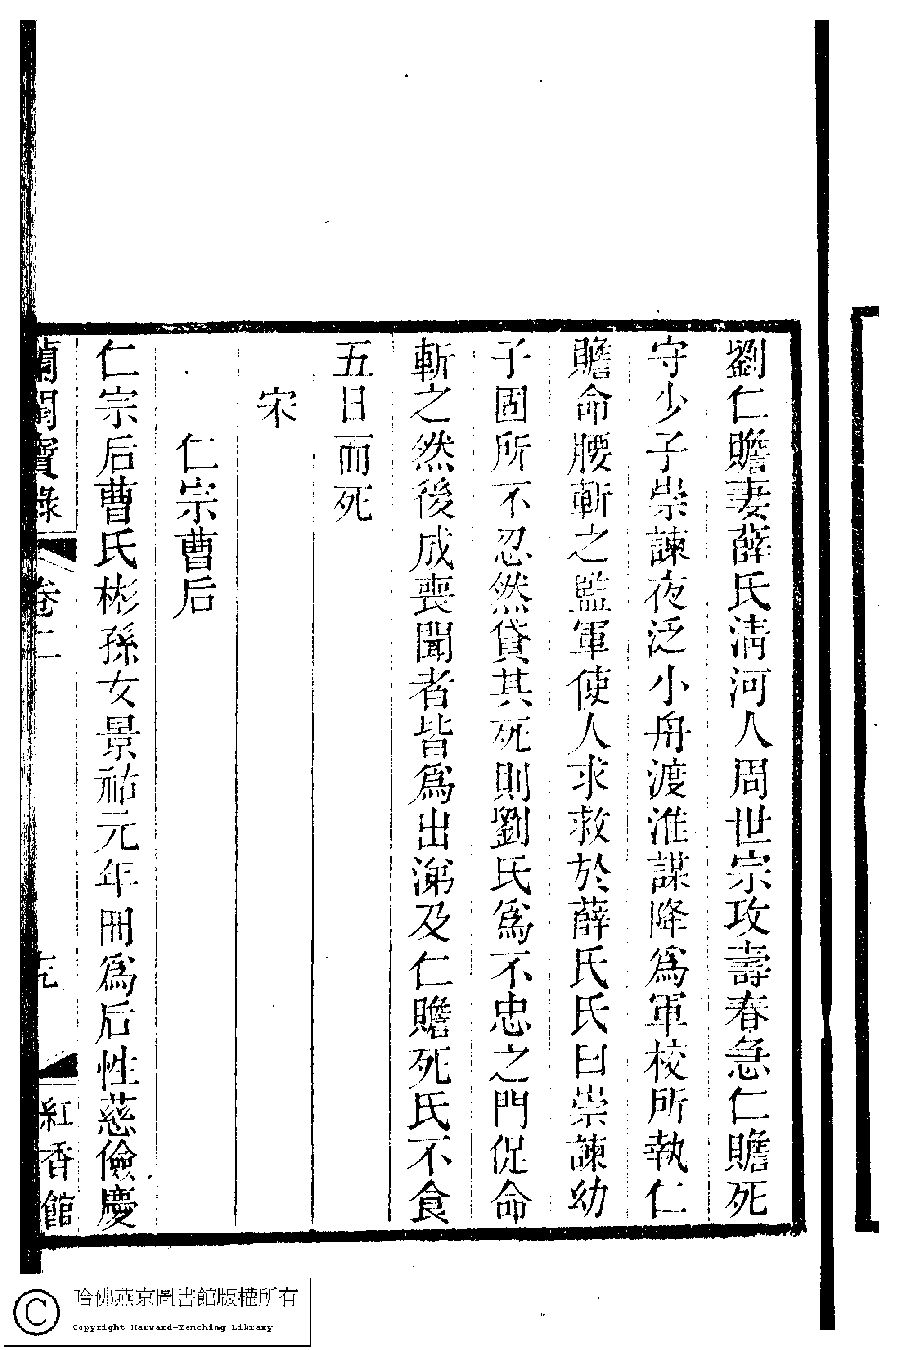 劉仁贍妻薛氏淸河人周世宗攻壽春急仁贍死
守少子崇諫夜泛小舟渡淮謀降爲軍校所執仁
贍命腰斬之監軍使人求救於薛氏氏曰崇諫幼
子固所不忍然貸其死則劉氏爲不忠之門促命
斬之然後成喪聞者皆爲出涕及仁贍死氏不食
五日而死
宋
仁宗曹后
仁宗后曹氏彬孫女景祐元年冊爲后性慈儉慶
蘭閨寶錄 卷二 紅香館
哈佛燕京圖書館版權所有
Copyright Harvard-Yenching Library